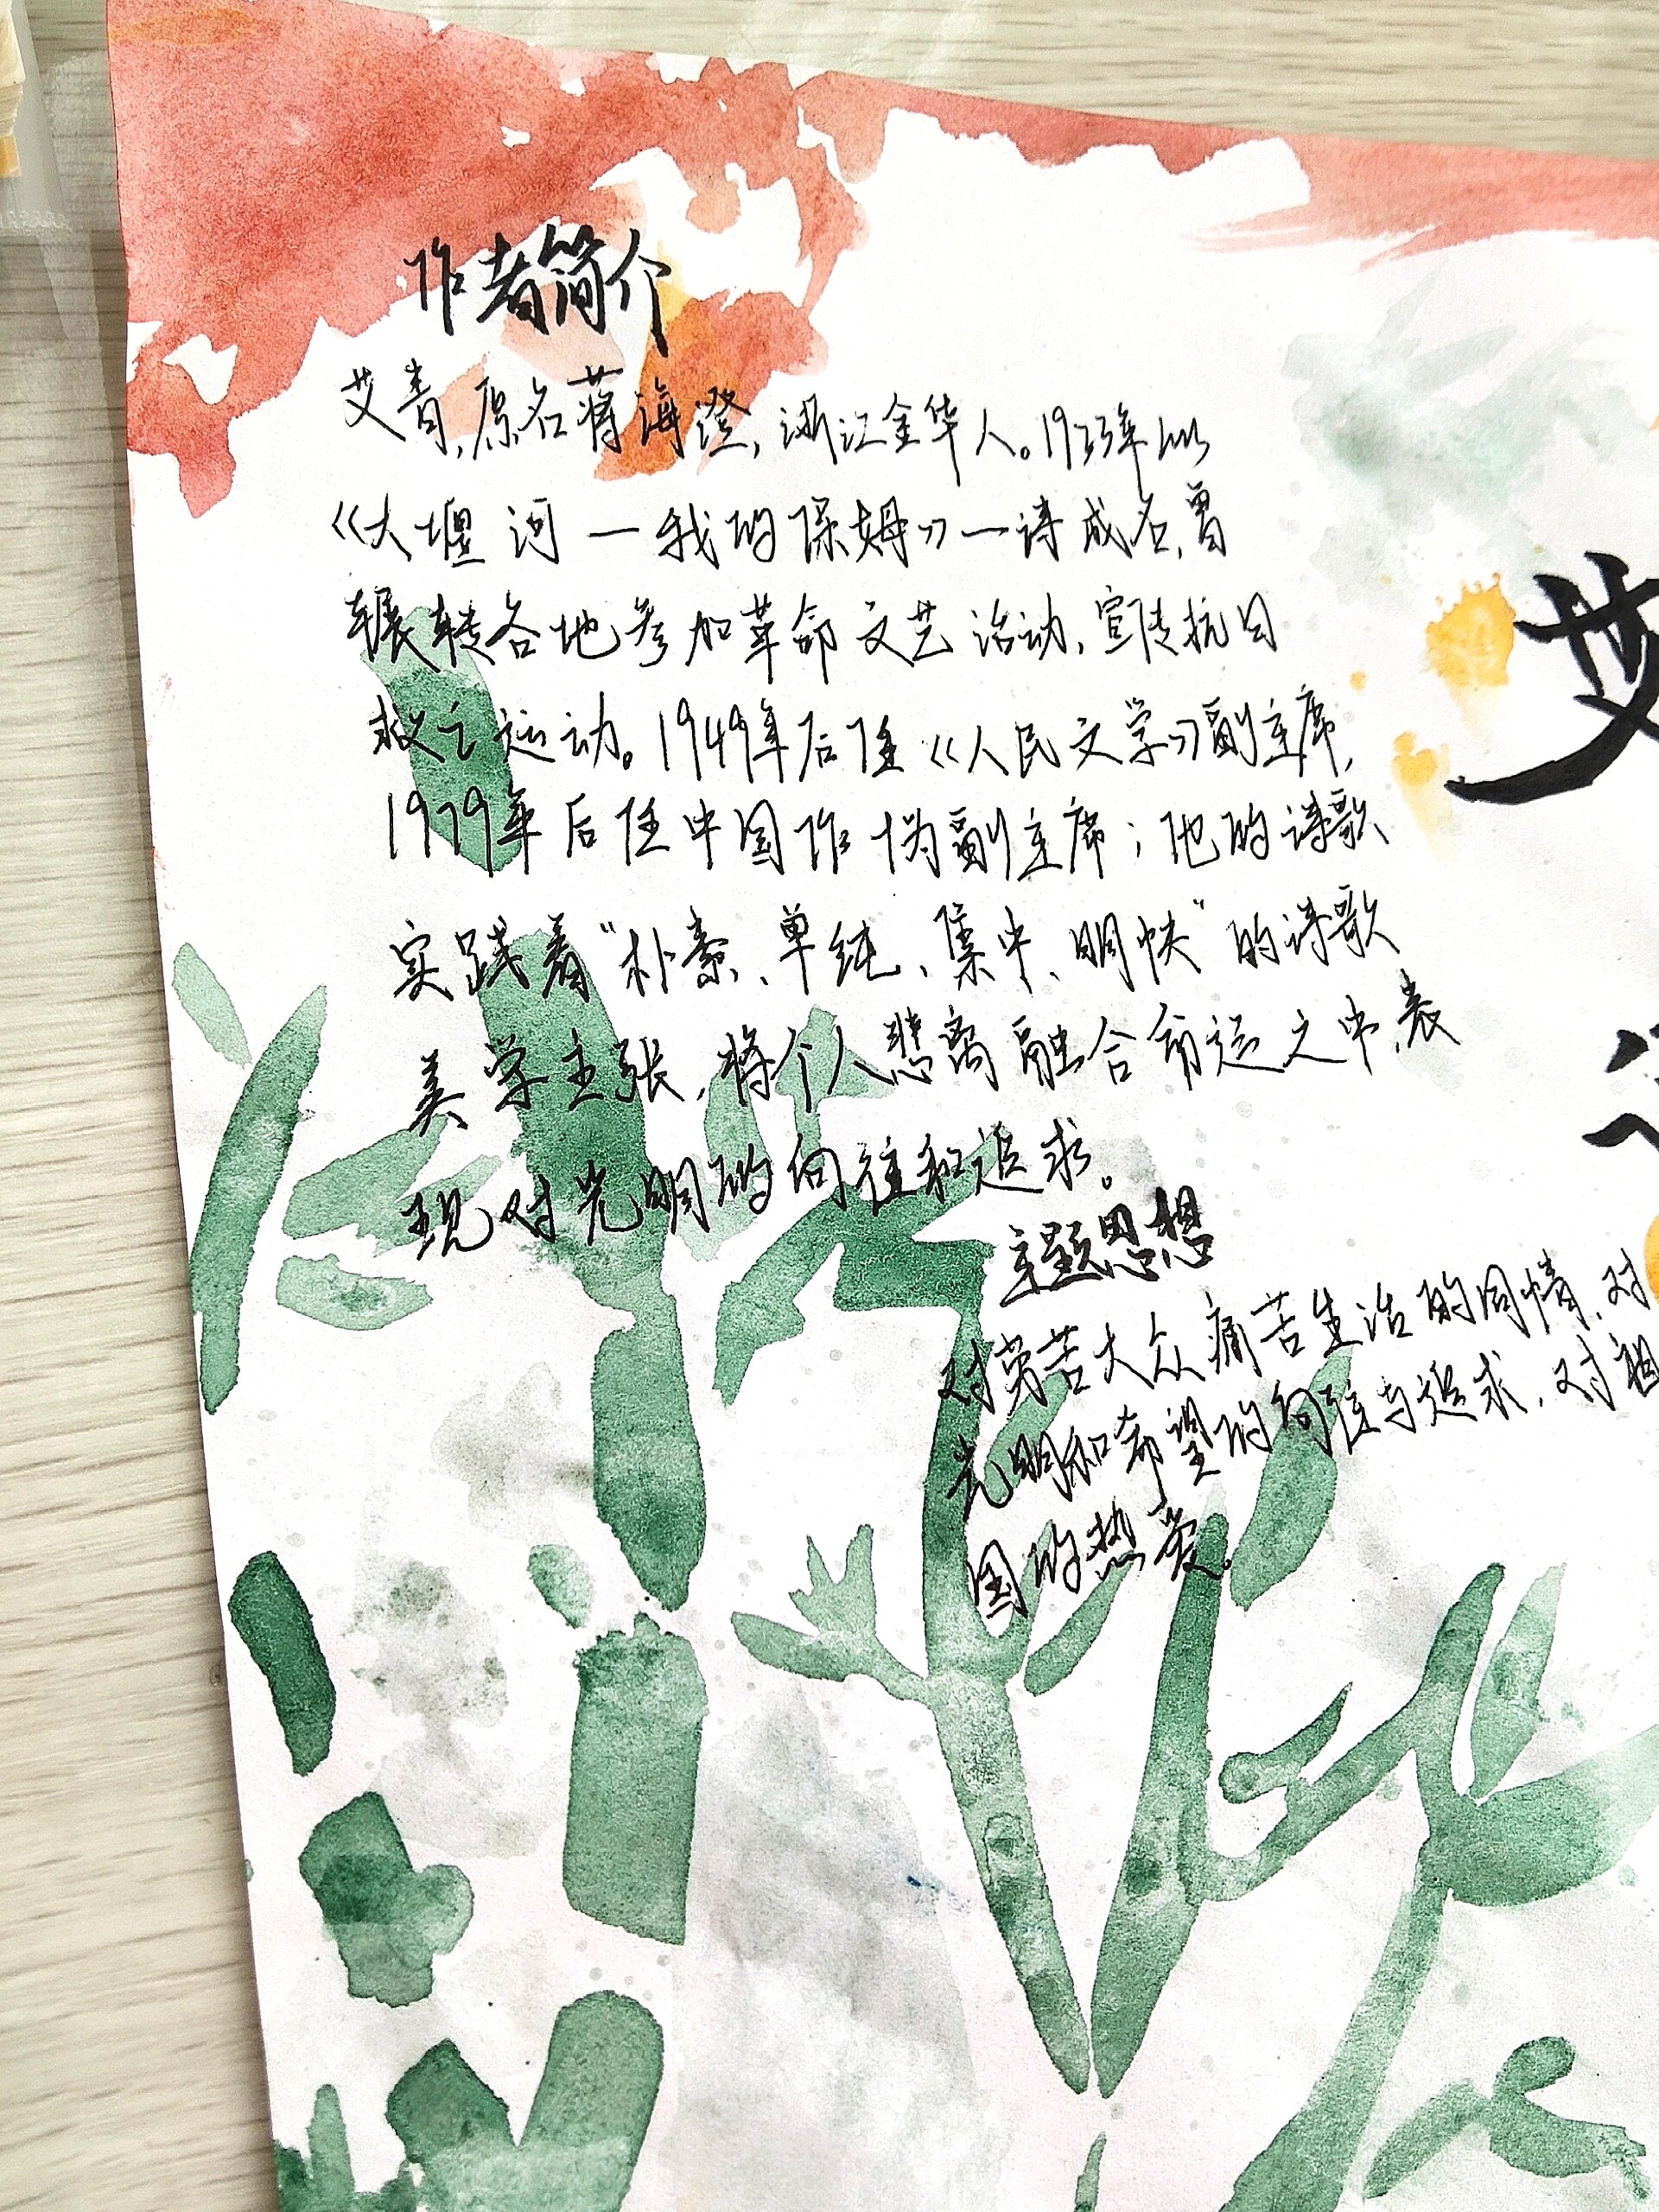 作者简介
艾青,原名蒋海澄,浙江金华人。1933年以
《大堰河—我的保姆》一诗成名,曾
辗转各地参加革命文艺活动,宣传抗日
救亡运动。1949年后任《人民文学》副主席,
1979年后任中国作协副主席;他的诗歌
实践着“朴素、单纯、集中、明快”的诗歌
美学主张,将个人悲离融合命运之中,表
现对光明的向往和追求。
主题思想
对劳苦大众痛苦生活的同情,对
光明和希望的向往与追求,对祖
国的热爱。
艾